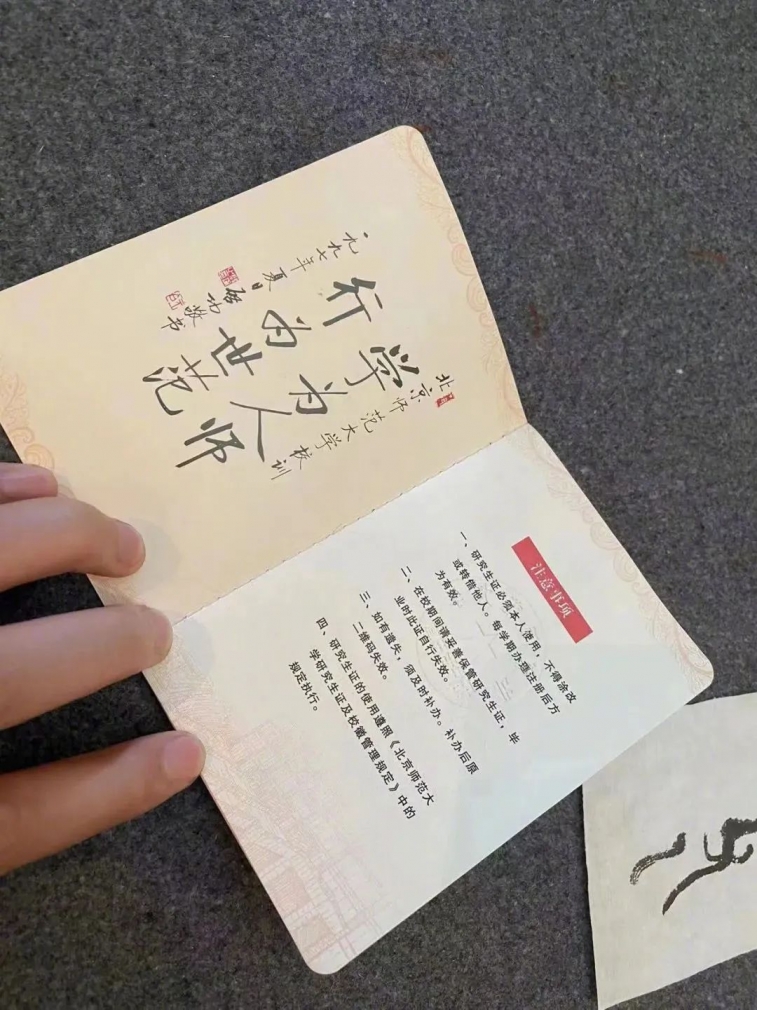 北京师范大学校训
学为人师
行为世范
一九九七年夏日 启功敬书
注意事项
一、研究生证必须本人使用，不得涂改
或转借他人。每学期办理注册后方
为有效。
二、在校期间请妥善保管研究生证，毕
业时此证自行失效。
三、如有遗失，须及时补办。补办后原
二维码失效。
四、研究生证的使用遵照《北京师范大
学研究生证及校徽管理规定》中的
规定执行。